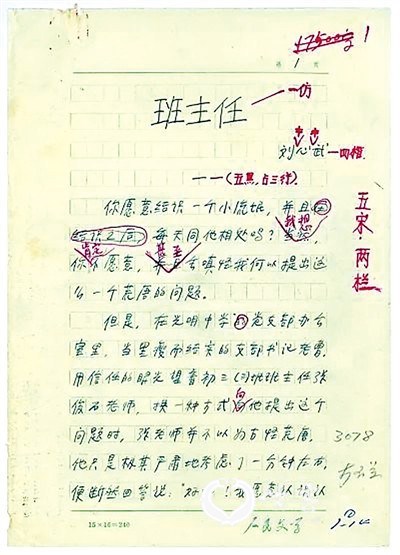 17500字 1
第 1 页
班主任 一仿
刘心武 四楷
一 (五黑,占三行)
五宋·两栏
你愿意结识一个小流氓,并且在
结识之后,每天同他相处吗?我想,
你肯定不愿意,甚至会嗔怪我何以提出这
么一个荒唐的问题。
但是,在光明中学的党支部办公
室里,当黑瘦而结实的支部书记老曹,
用信任的眼光望着初三(3)班班主任张
俊石老师,换一种方式向他提出这个
问题时,张老师并不以为古怪荒唐,
他只是极其严肃地考虑了一分钟左右,
便断然回答说:“好吧!我愿意认识认
3078
15×16=240
人民文学